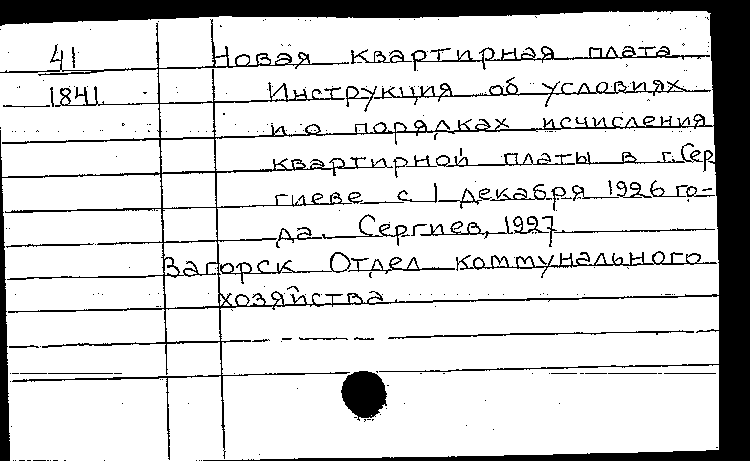 41 Новая квартирная плата.
1841. Инструкция об условиях
и о порядках исчисления
квартирной платы в г. Сер
гиеве с 1 декабря 1926 го-
да. Сергиев, 1927.
Загорск Отдел коммунального
хозяйства.